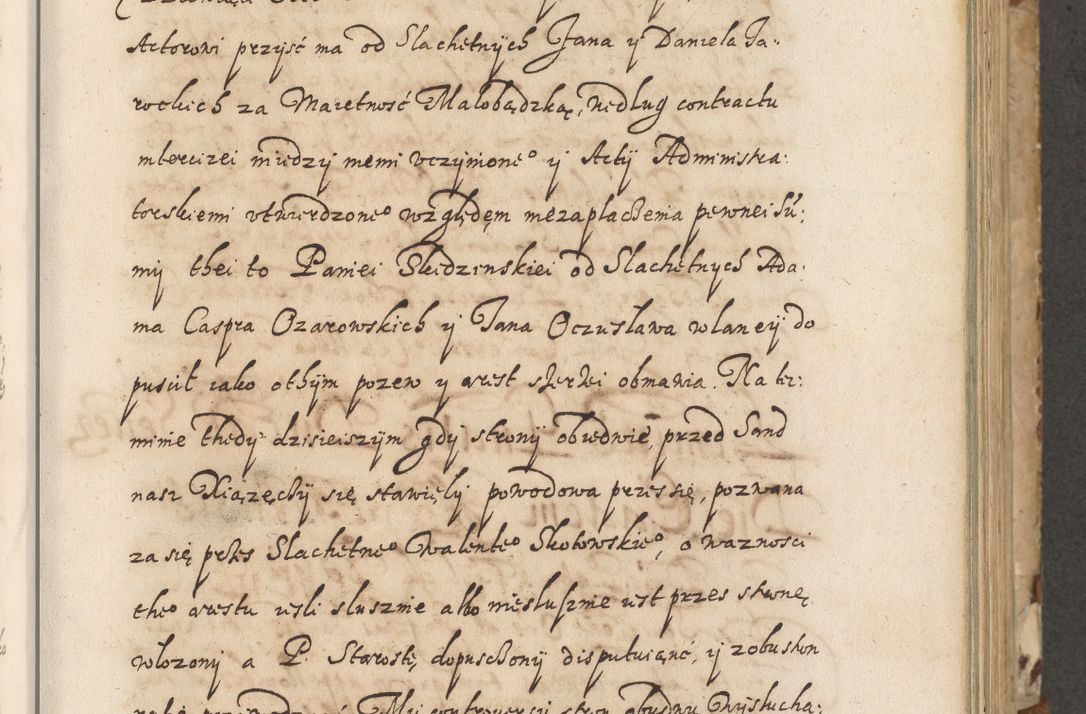 Actorowi przyść ma od Slachetnych Jana y Daniela Ja-
rockich za Maietność Małobądzką, wedlug contractu
mterczei miedzy niemi vczynione° y Acty Administra-
torskiemi vtwierdzone° względem niezaplaczenia pewnei Su-
my thei to Paniei Sledzenskiei od Slachetnych Ada-
ma Caspra Ozarowskich y Jana Oczuslawa wlaney do
puscił iako othym pozew y arest szerzei obmawia. Na ter-
minie thedy dzisieiszym gdy strony obiedwie, przed Sand
nasz Xiązęczy się stawiely powodowa przes się, pozwana
za się przes Slachetne° Walente° Skotowskie°, o waznosci
the° arestu iesli slusznie albo nieslusznie iest przes stronę
wlozony a P. Starostę dopusczony disputuiąnc, y zobustron